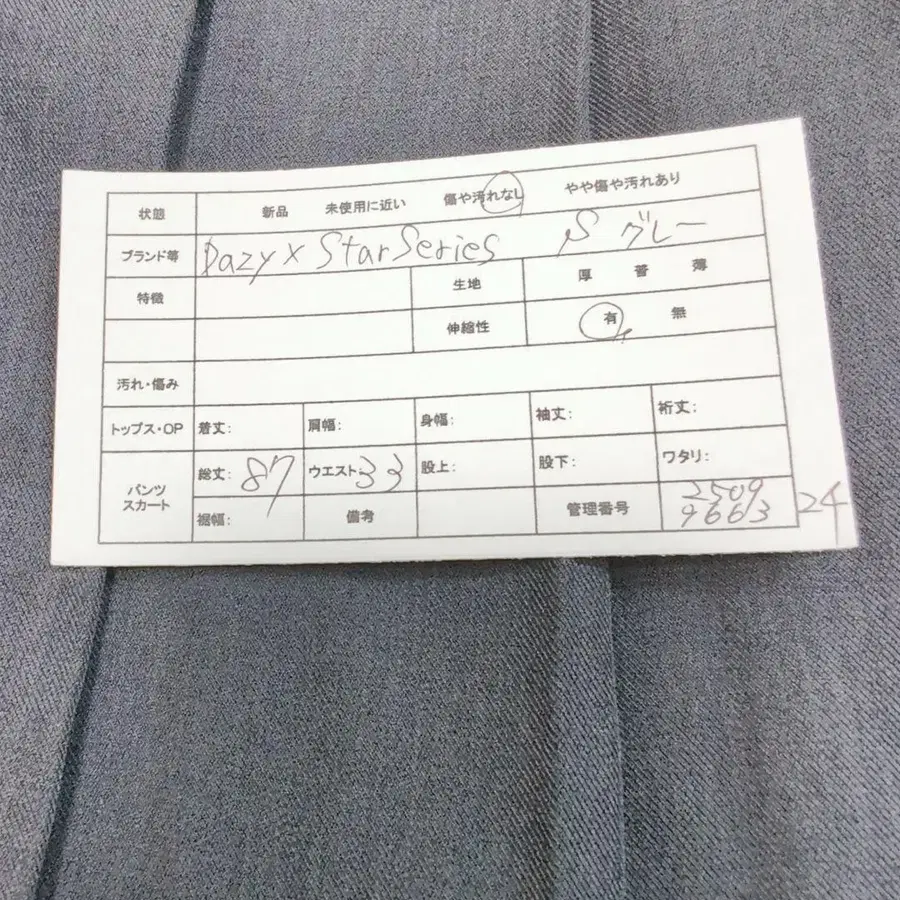 状態 新品 未使用に近い 傷や汚れなし やや傷や汚れあり
ブランド等 Dazy x Star Series S グレー
特徴 生地 厚 普 薄
伸縮性 有 無
汚れ・傷み
トップス・OP 着丈: 肩幅: 身幅: 袖丈: 裄丈:
パンツ スカート 総丈: 87 ウエスト 33 股上: 股下: ワタリ:
裾幅: 備考 管理番号 2509
9663 24